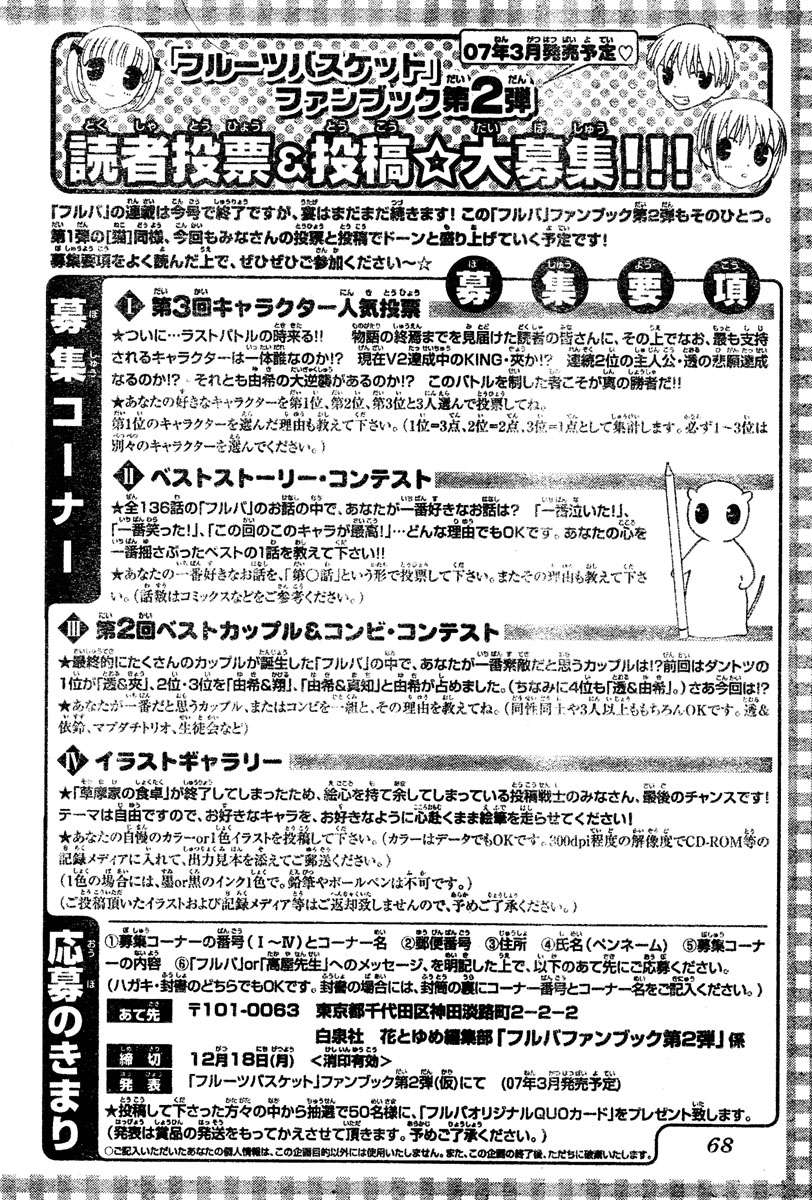 07年3月発売予定♡
「フルーツバスケット」
ファンブック第2弾
読者投票&投稿☆大募集!!!
「フルバ」の連載は今号で終了ですが、宴はまだまだ続きます! この「フルバ」ファンブック第2弾もそのひとつ。
第1弾の[猫]同様、今回もみなさんの投票と投稿でドーンと盛り上げていく予定です!
募集要項をよく読んだ上で、ぜひぜひご参加ください〜☆
募集要項
募集コーナー
Ⅰ 第3回キャラクター人気投票
★ついに…ラストバトルの時来る!! 物語の終焉までを見届けた読者の皆さんに、その上でなお、最も支持
されるキャラクターは一体誰なのか!? 現在V2達成中のKING・夾か!? 連続2位の主人公・透の悲願達成
なるのか!? それとも由希の大逆襲があるのか!? このバトルを制した者こそが真の勝者だ!!
★あなたの好きなキャラクターを第1位、第2位、第3位と3人選んで投票してね。
第1位のキャラクターを選んだ理由も教えて下さい。(1位=3点、2位=2点、3位=1点として集計します。必ず1〜3位は
別々のキャラクターを選んでください。)
Ⅱ ベストストーリー・コンテスト
★全136話の「フルバ」のお話の中で、あなたが一番好きなお話は? 「一番泣いた!」、
「一番笑った!」、「この回のこのキャラが最高!」…どんな理由でもOKです。あなたの心を
一番揺さぶったベストの1話を教えて下さい!!
★あなたの一番好きなお話を、「第○話」という形で投票して下さい。またその理由も教えて下さ
い。(話数はコミックスなどをご参考ください。)
Ⅲ 第2回ベストカップル&コンビ・コンテスト
★最終的にたくさんのカップルが誕生した「フルバ」の中で、あなたが一番素敵だと思うカップルは!?前回はダントツの
1位が「透&夾」、2位・3位を「由希&翔」、「由希&真知」と由希が占めました。(ちなみに4位も「透&由希」。)さあ今回は!?
★あなたが一番だと思うカップル、またはコンビを一組と、その理由を教えてね。(同性同士や3人以上ももちろんOKです。透&
依鈴、マブダチトリオ、生徒会など)
Ⅳ イラストギャラリー
★「草摩家の食卓」が終了してしまったため、絵心を持て余してしまっている投稿戦士のみなさん、最後のチャンスです!
テーマは自由ですので、お好きなキャラを、お好きなように心赴くまま絵筆を走らせてください!
★あなたの自慢のカラーor1色イラストを投稿して下さい。(カラーはデータでもOKです。300dpi程度の解像度でCD-ROM等の
記録メディアに入れて、出力見本を添えてご郵送ください。)
(1色の場合には、墨or黒のインク1色で。鉛筆やボールペンは不可です。)
(ご投稿頂いたイラストおよび記録メディア等はご返却致しませんので、予めご了承ください。)
応募のきまり
①募集コーナーの番号(Ⅰ〜Ⅳ)とコーナー名 ②郵便番号 ③住所 ④氏名(ペンネーム) ⑤募集コーナ
ーの内容 ⑥「フルバ」or「高屋先生」へのメッセージ、を明記した上で、以下のあて先にご応募ください。
(ハガキ・封書のどちらでもOKです。封書の場合には、封筒の裏にコーナー番号とコーナー名をご記入ください。)
あて先 〒101-0063 東京都千代田区神田淡路町2-2-2
白泉社 花とゆめ編集部「フルバファンブック第2弾」係
締切 12月18日(月) <消印有効>
発表 「フルーツバスケット」ファンブック第2弾(仮)にて (07年3月発売予定)
★投稿して下さった方々の中から抽選で50名様に、「フルバオリジナルQUOカード」をプレゼント致します。
(発表は賞品の発送をもってかえさせて頂きます。予めご了承ください。)
○ご記入いただいたあなたの個人情報は、この企画目的以外には使用いたしません。また、この企画の終了後、ただちに破棄いたします。
68